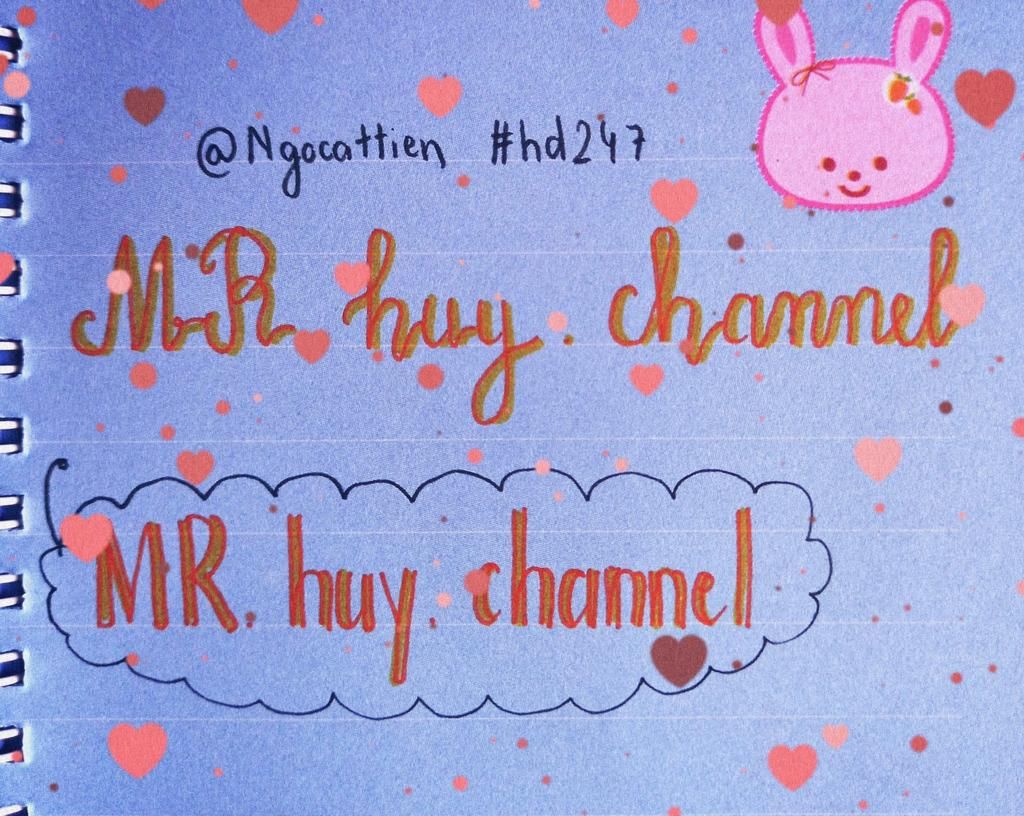 @Ngocattien #hd247
MR huy. channel
MR huy channel